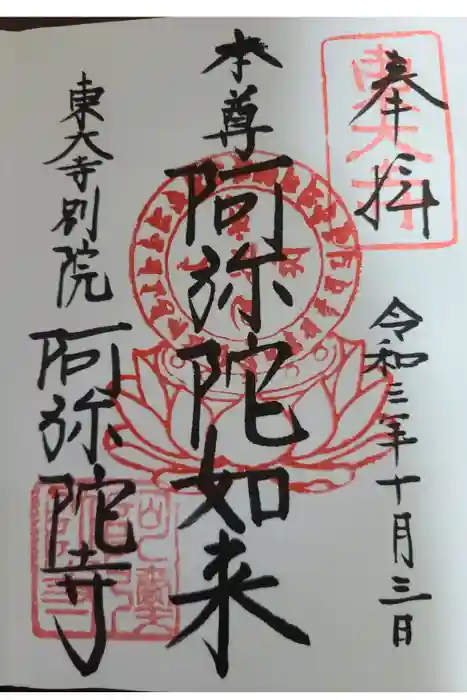 奉拝
東大寺
令和三年十月三日
本尊
阿弥陀如来
東大寺別院
阿弥陀寺